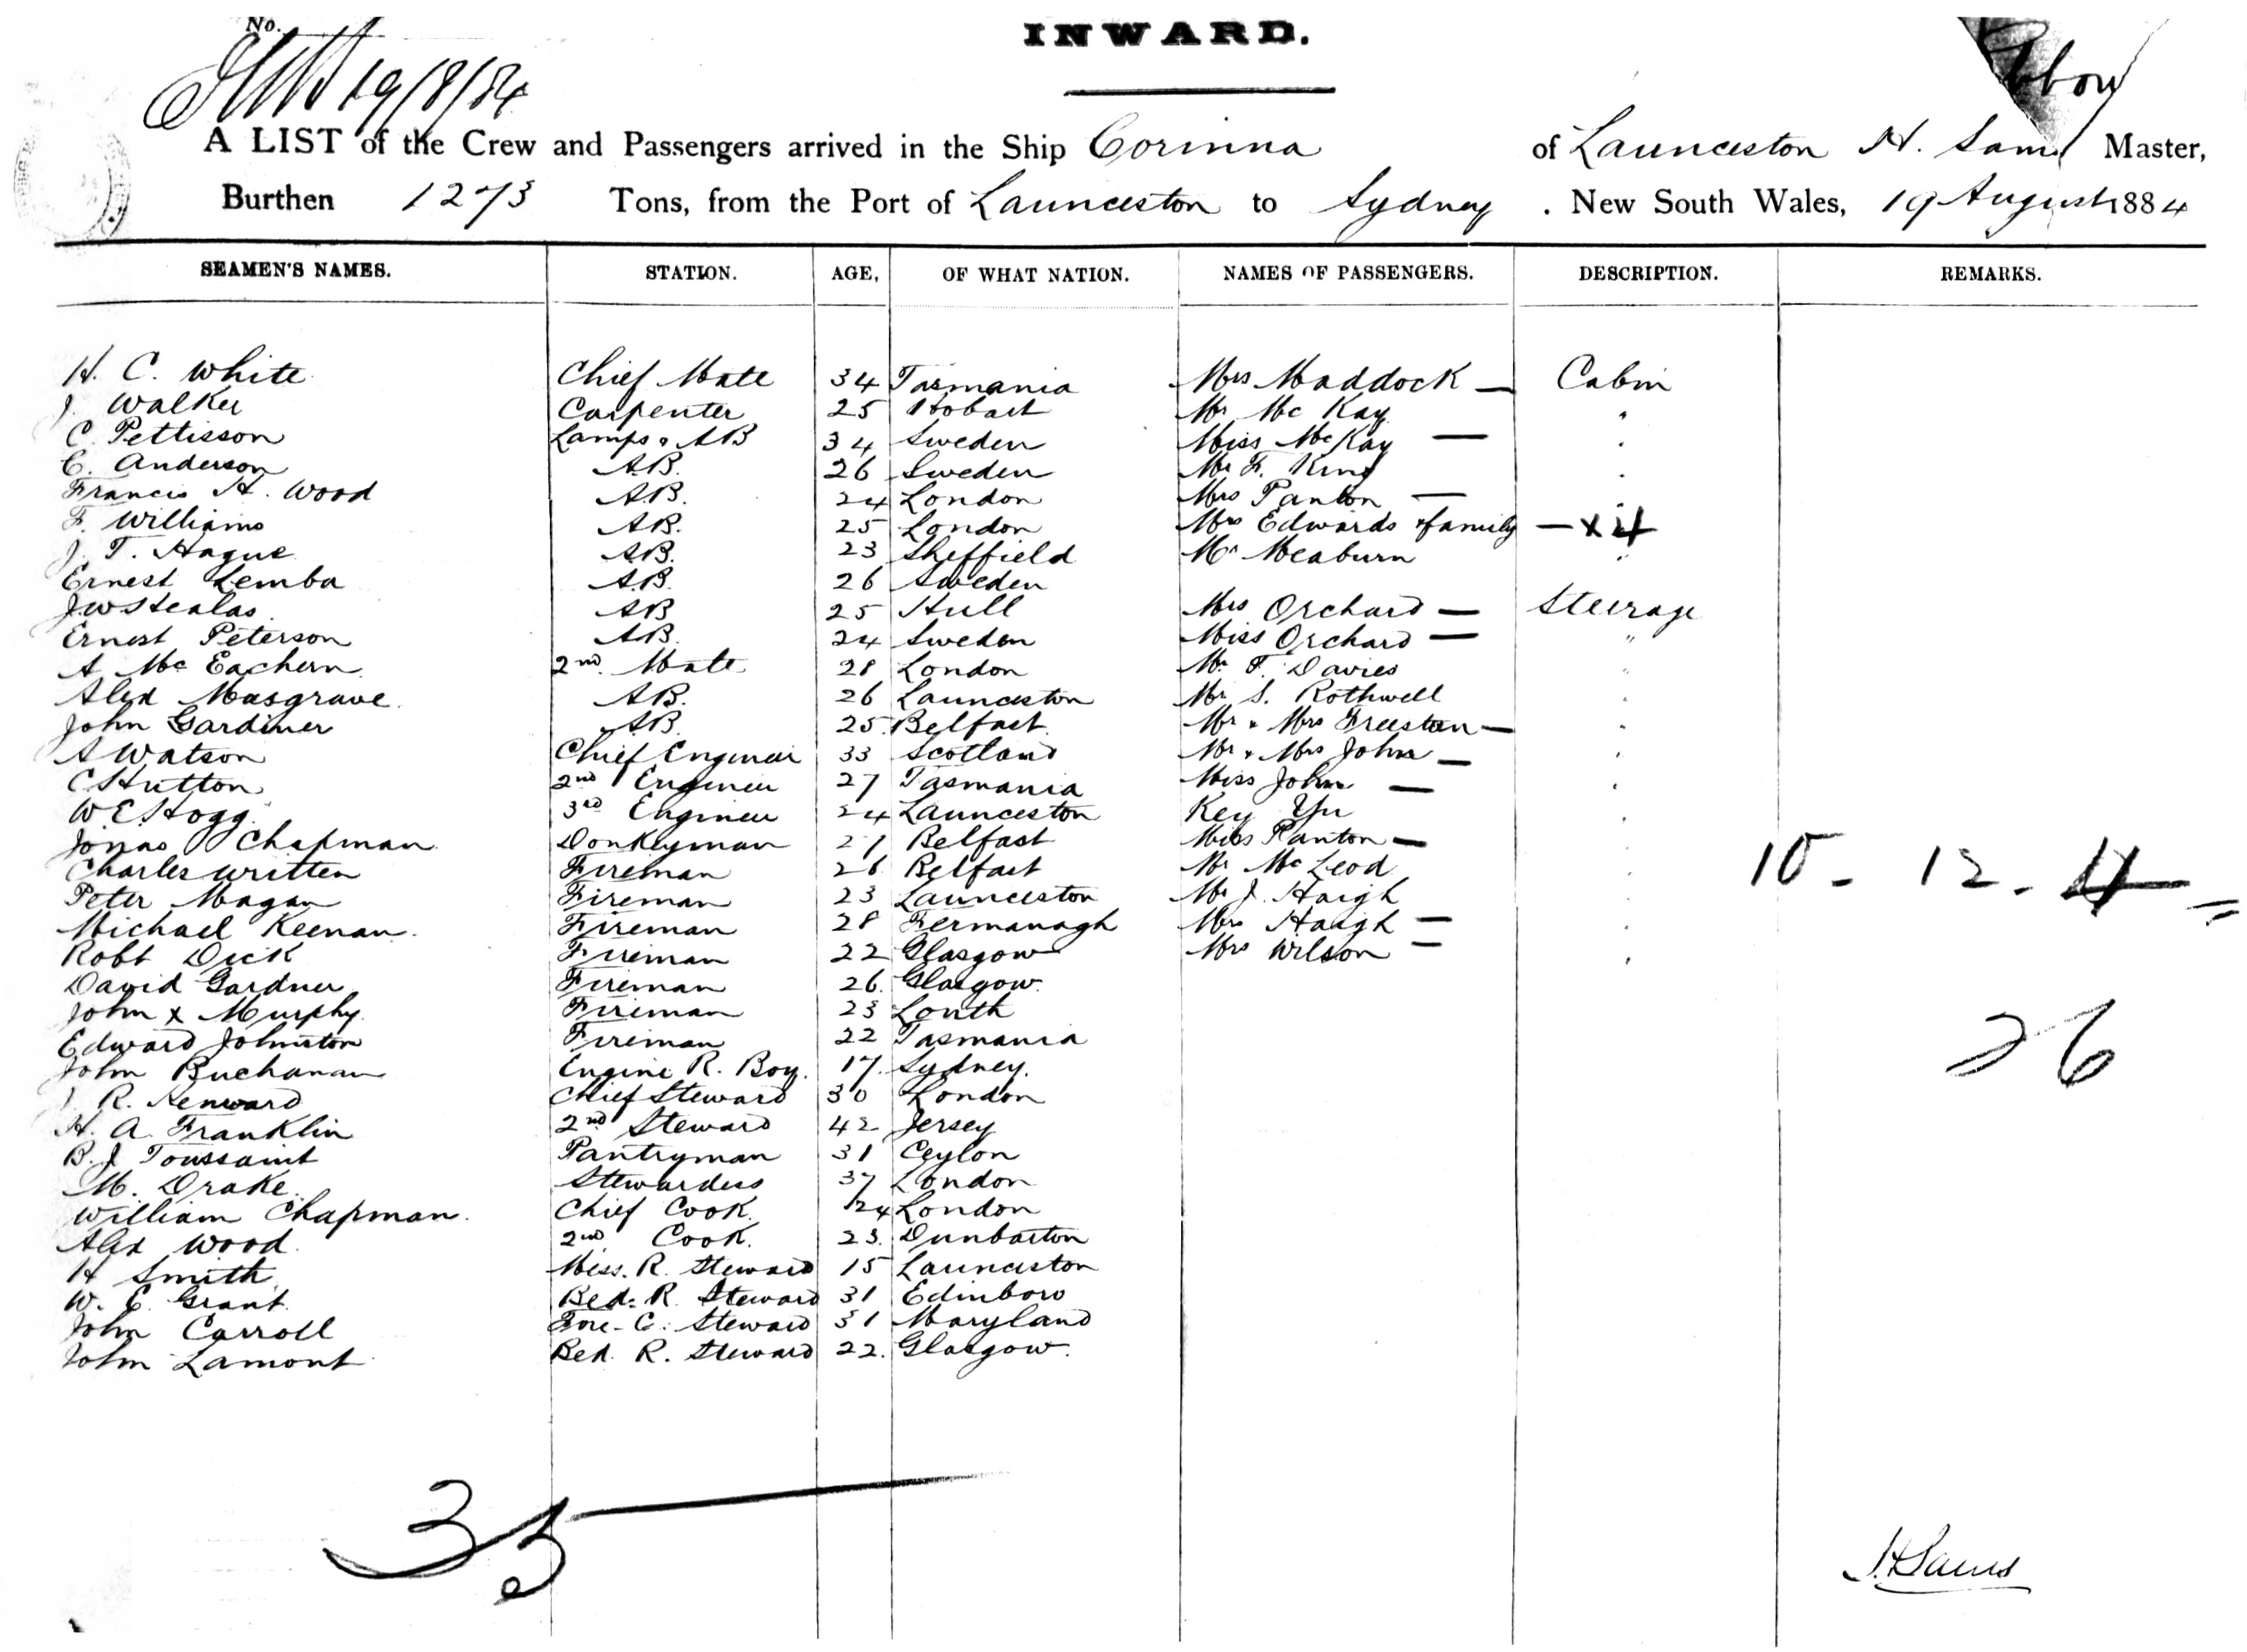 No.
19/8/84
INWARD.
A LIST of the Crew and Passengers arrived in the Ship Corinna of Launceston H. Sams Master,
Burthen 1273 Tons, from the Port of Launceston to Sydney . New South Wales, 19 August 1884
SEAMEN'S NAMES. STATION. AGE, OF WHAT NATION. NAMES OF PASSENGERS. DESCRIPTION. REMARKS.
H. C. White Chief Mate 34 Tasmania Mrs Maddock — Cabin
J. Walker Carpenter 25 Hobart Mr Mc Kay "
C. Pettisson Lamps & AB 34 Sweden Miss McKay — "
C. Anderson A.B. 26 Sweden Mr F. King "
Francis H. Wood A.B. 24 London Mrs Panton — "
F. Williams A.B. 25 London Mrs Edwards & family — x 4
J. T. Hague A.B. 23 Sheffield Mr Meaburn "
Ernest Lemba A.B. 26 Sweden
J W Stealas AB 25 Hull Mrs Orchard — Steerage
Ernest Peterson A.B. 24 Sweden Miss Orchard — "
A Mc Eachern 2nd Mate 28 London Mr T. Davies "
Alex Masgrave A.B. 26 Launceston Mr S. Rothwell "
John Gardiner A.B. 25 Belfast Mr & Mrs Freestun — "
A Watson Chief Engineer 33 Scotland Mr & Mrs John — "
C Hutton 2nd Engineer 27 Tasmania Miss John — "
W E Hogg 3rd Engineer 24 Launceston Key Yu "
Jonas Chapman Donkeyman 27 Belfast Miss Panton — "
Charles Written Fireman 26 Belfast Mr Mc Leod " 10 - 12 - 4 =
Peter Magan Fireman 23 Launceston Mr J. Haigh "
Michael Keenan Fireman 28 Fermanagh Mrs Haigh — "
Robt Dick Fireman 22 Glasgow Mrs Wilson — "
David Gardner Fireman 26. Glasgow.
John x Murphy Fireman 23 Louth
Edward Johnston Fireman 22 Tasmania
26
John Buchanan Engine R. Boy. 17. Sydney.
J. R. Kenward Chief Steward 30 London
H. A. Franklin 2nd Steward 42 Jersey
B. J Toussaint Pantryman 31 Ceylon
M. Drake Stewardess 37 London
William Chapman. Chief Cook. 24 London
Alex Wood. 2nd Cook. 23. Dunbarton
H Smith Mess. R. Steward 15 Launceston
W. E. Grant Bed. R. Steward 31 Edinboro
John Carroll Fore - C. Steward 31 Maryland
John Lamont Bed. R. Steward 22. Glasgow.
35
H Sams